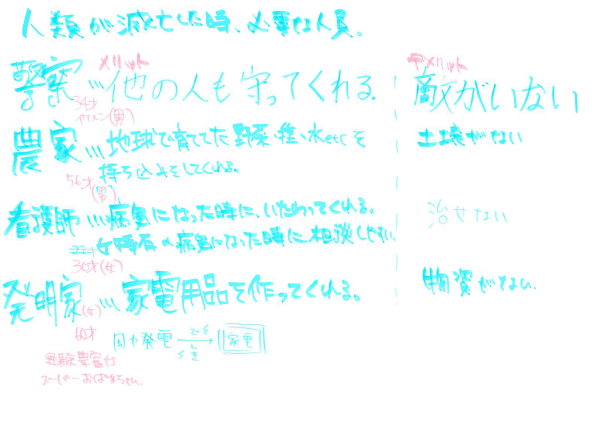 人類が滅亡した時、必要な人員。
メリット
デメリット
警察…他の人も守ってくれる。
敵がいない
34才
イケメン(男)
農家…地球で育ててた野菜・種・水etcを
持ち込みをしてくれる。
土壌がない
56才(男)
看護師…病気になった時に、いたわってくれる。
治せない
女特有の病気になった時に相談しやすい
36才(女)
発明家(女)…家電用品を作ってくれる。
物資がない
60才
発電
家電
経験豊富な
スーパーおばあちゃん